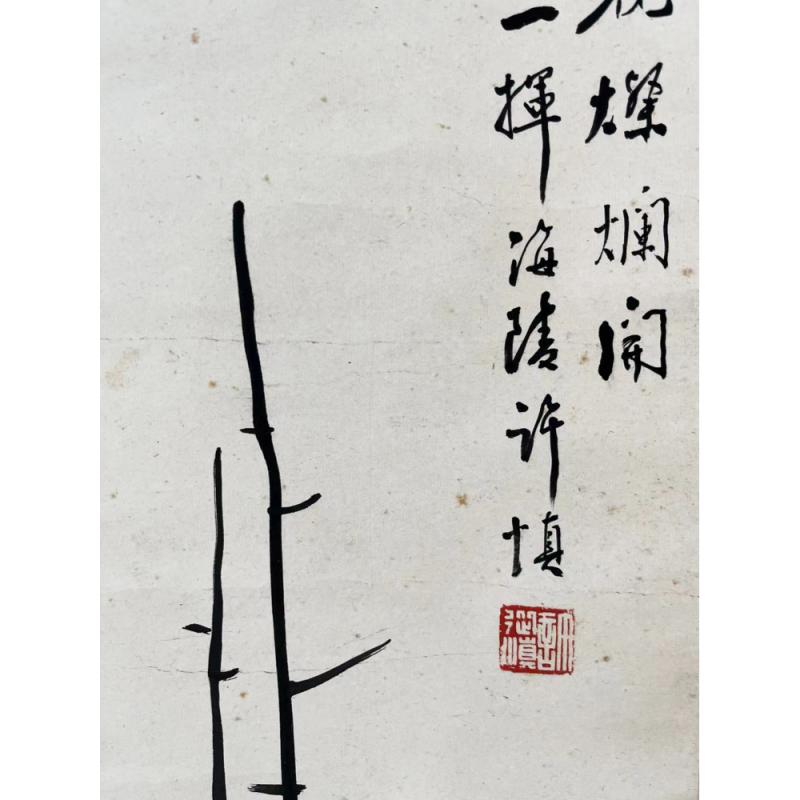 燦爛開
一揮海陵許慎